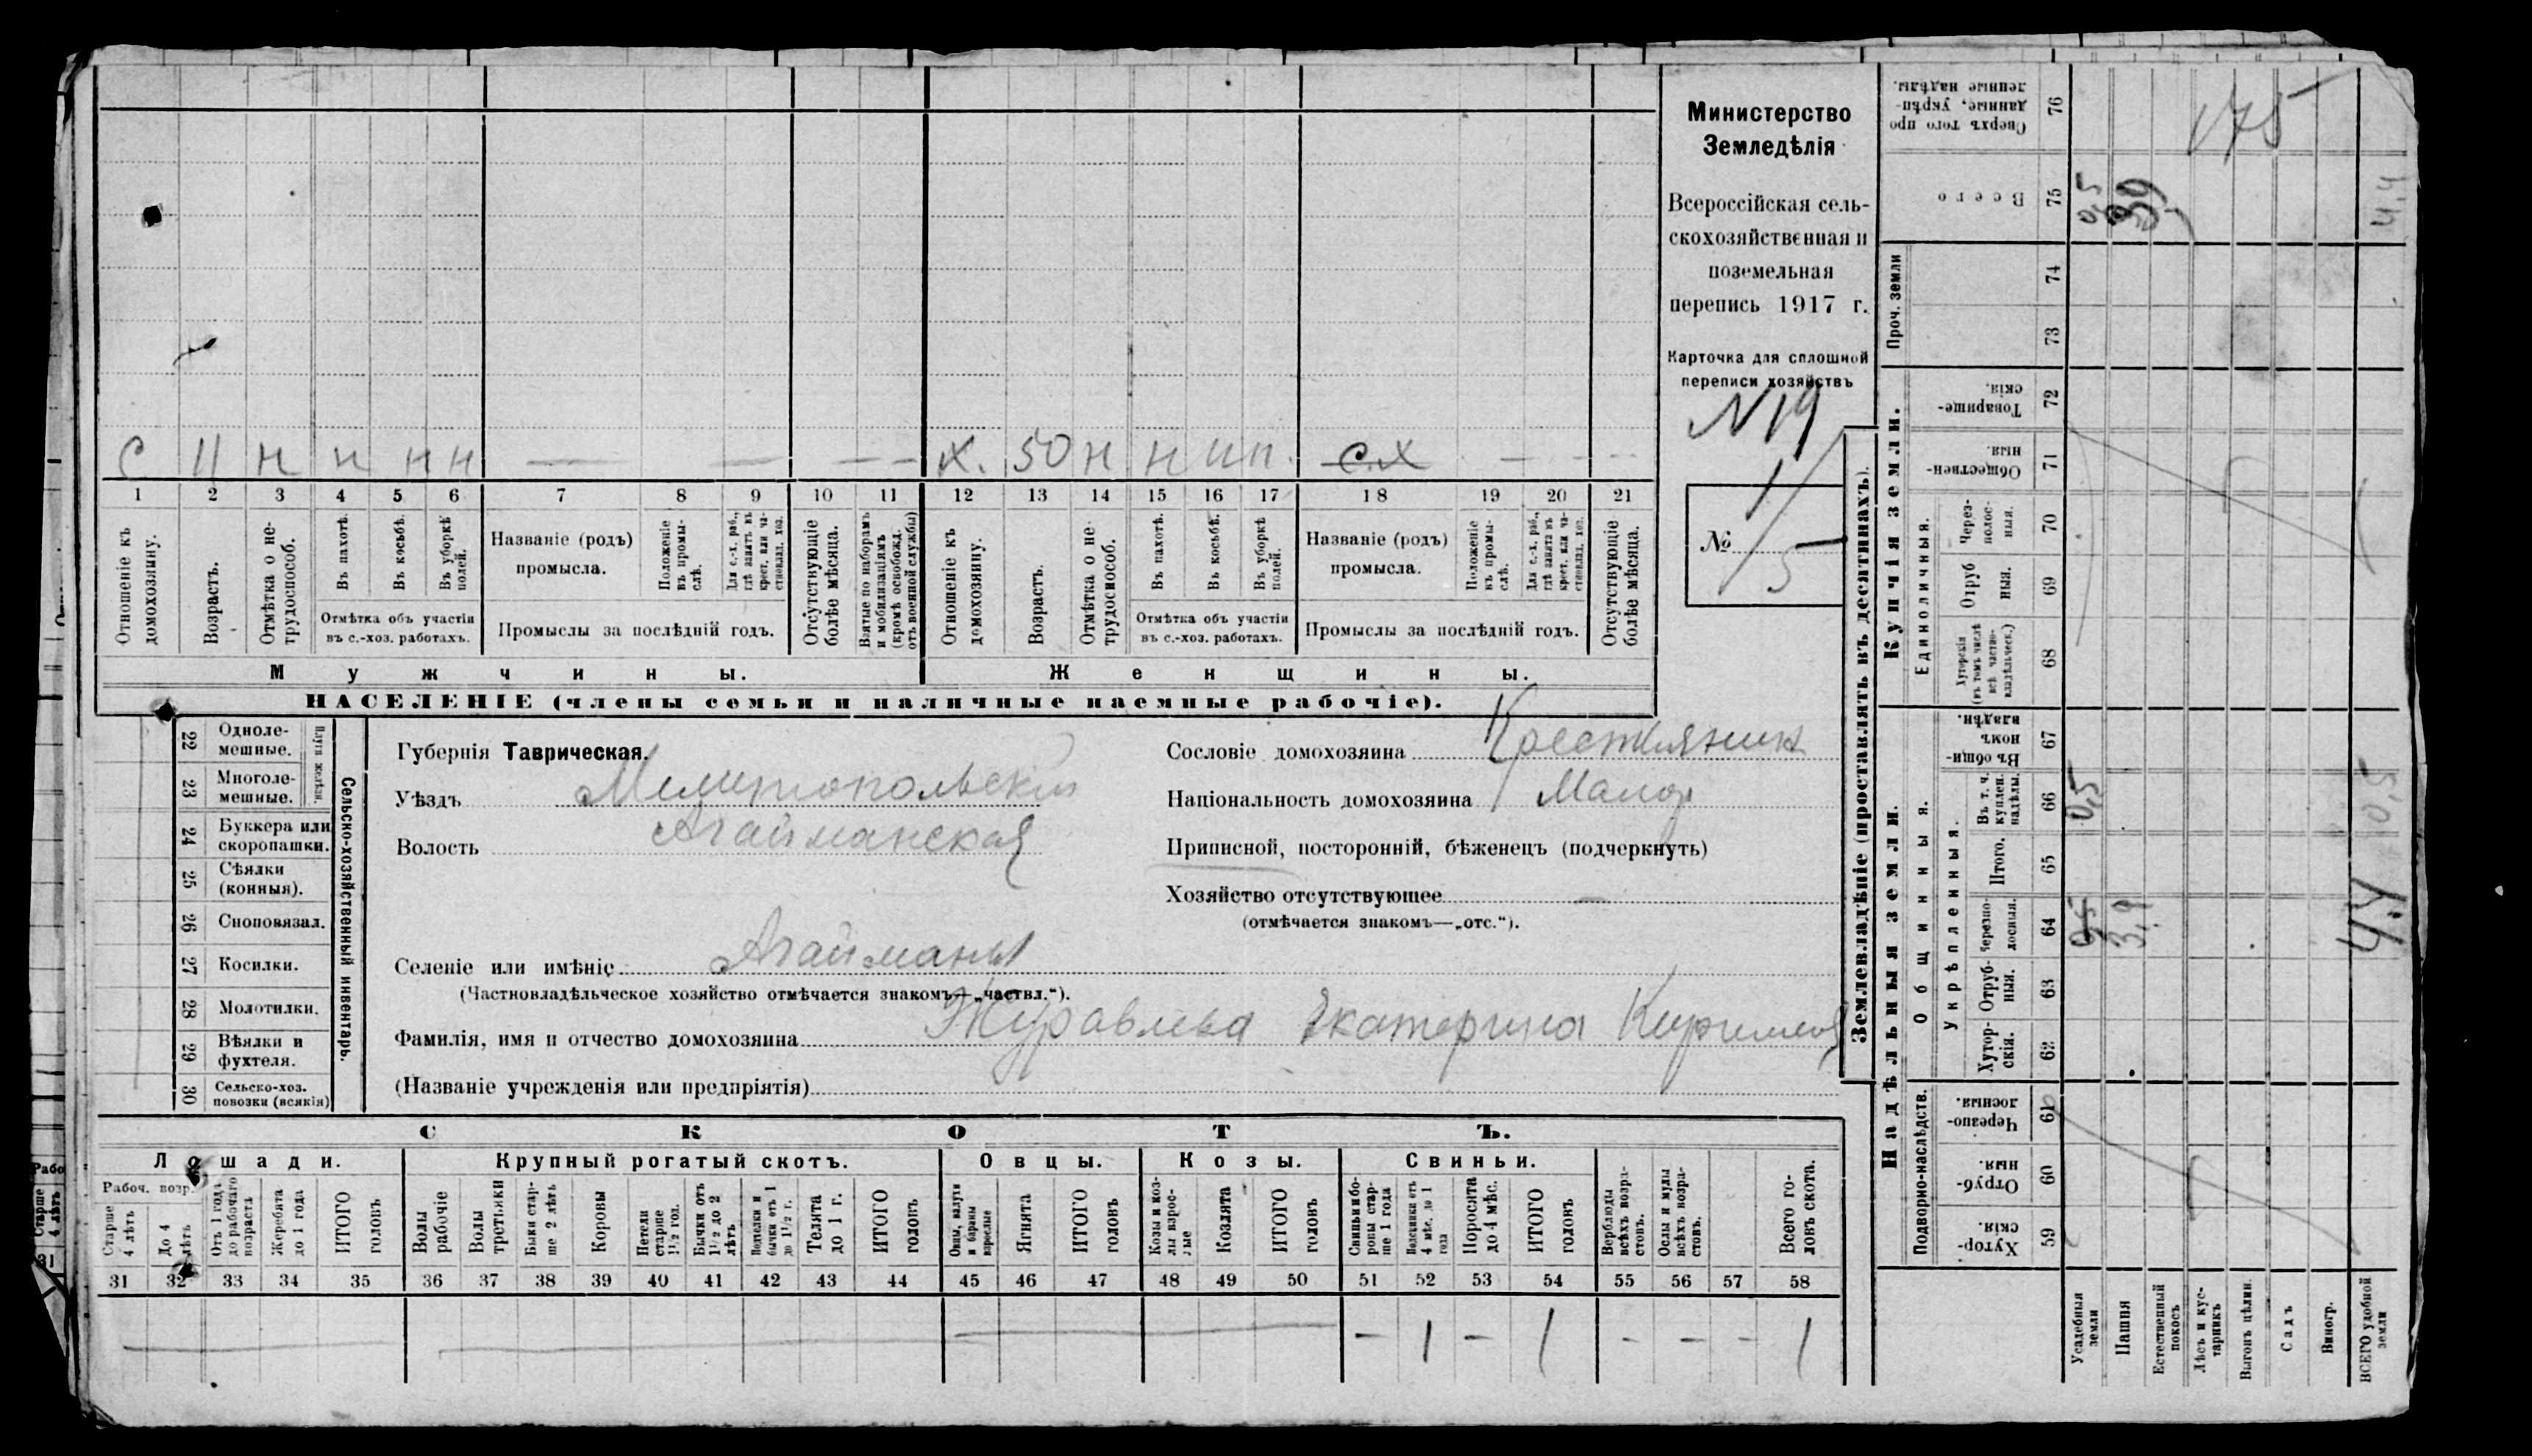 С 11 н н н н — — — — х. 50 н н н н с.х — — —
1 2 3 4 5 6 7 8 9 10 11 12 13 14 15 16 17 18 19 20 21
Отношеніе къ домохозяину.
Возрастъ.
Отмѣтка о не-
трудоспособ.
Въ пахотѣ.
Въ косьбѣ.
Въ уборкѣ
полей.
Отмѣтка объ участіи
въ с.-хоз. работахъ.
Названіе (родъ)
промысла.
Положеніе
въ промы-
слѣ.
Для с.-х. раб.,
гдѣ занятъ въ
крест. или ча-
стновлад. хоз.
Промыслы за послѣдній годъ.
Отсутствующіе
болѣе мѣсяца.
Взятые по наборамъ
и мобилизаціямъ
(кромѣ освобожд.
отъ военной службы)
Отношеніе къ
домохозяину.
Возрастъ.
Отмѣтка о не-
трудоспособ.
Въ пахотѣ.
Въ косьбѣ.
Въ уборкѣ
полей.
Отмѣтка объ участіи
въ с.-хоз. работахъ.
Названіе (родъ)
промысла.
Положеніе
въ промы-
слѣ.
Для с.-х. раб.,
гдѣ занята въ
крест. или ча-
стновлад. хоз.
Промыслы за послѣдній годъ.
Отсутствующіе
болѣе мѣсяца.
Мужчины.
Женщины.
НАСЕЛЕНІЕ (члены семьи и наличные наемные рабочіе).
Министерство
Земледѣлія
Всероссійская сель-
скохозяйственная и
поземельная
перепись 1917 г.
Карточка для сплошной
переписи хозяйствъ
N 19
1/5
№
22 Одноле-
мешные.
23 Многоле-
мешные.
Плуги желѣзн.
24 Буккера или
скоропашки.
25 Сѣялки
(конныя).
26 Сноповязал.
27 Косилки.
28 Молотилки.
29 Вѣялки и
фухтеля.
30 Сельско-хоз.
повозки (всякія)
Сельско-хозяйственный инвентарь.
Губернія Таврическая.
Уѣздъ Мелитопольскій
Волость Агайманская
Селеніе или имѣніе Агайманы
(Частновладѣльческое хозяйство отмѣчается знакомъ—„частвл.“).
Фамилія, имя и отчество домохозяина Журавлева Екатерина
(Названіе учрежденія или предпріятія)
Сословіе домохозяина Крестьянин
Національность домохозяина Малор
Приписной, посторонній, бѣженецъ (подчеркнуть)
Хозяйство отсутствующее —
(отмѣчается знакомъ—„отс.“).
СКОТЪ.
Лошади.
Рабоч. возр.
Старше
4 лѣтъ
До 4
лѣтъ
Отъ 1 года
до рабочаго
возраста
Жеребята
до 1 года
ИТОГО
головъ
Крупный рогатый скотъ.
Волы
рабочіе
Волы
третьяки
Быки стар-
ше 2 лѣтъ
Коровы
Нетели
старше
1½ год.
Бычки отъ
1½ до 2
лѣтъ
Телки и
бычки отъ 1
до 1½ г.
Телята
до 1 г.
ИТОГО
головъ
Овцы.
Овцы, валухи
и бараны
взрослые
Ягнята
ИТОГО
головъ
Козы.
Козы и коз-
лы взрос-
лые
Козлята
ИТОГО
головъ
Свиньи.
Свиньи и бо-
ровы стар-
ше 1 года
Подсвинки отъ
4 мѣс. до 1
года
Поросята
до 4 мѣс.
ИТОГО
головъ
Верблюды
всѣхъ возра-
стовъ.
Ослы и мулы
всѣхъ возра-
стовъ.
Всего го-
ловъ скота.
31 32 33 34 35 36 37 38 39 40 41 42 43 44 45 46 47 48 49 50 51 52 53 54 55 56 57 58
— 1 — 1 — — — 1
Землевладѣніе (проставлять въ десятинахъ).
Надѣльныя земли.
Купчія земли.
Проч. земли
Подворно-наслѣдств.
Общинныя.
Укрѣпленныя.
Единоличныя.
Хутор-
скія. 59
Отруб-
ныя. 60
Черезпо-
лосныя. 61
Хутор-
скія. 62
Отруб-
ныя. 63
Черезпо-
лосныя. 64
Итого. 65
Въ т. ч.
куплен.
надѣлы. 66
Въ общи-
номъ
владѣн. 67
Хуторскія
(въ томъ числѣ
всѣ частно-
владѣльческ.) 68
Отруб
ныя. 69
Через-
полос-
ныя. 70
Обществен-
ныя. 71
Товарище-
скія. 72
73
74
Всего 75
Сверхъ того про
данные, укрѣп-
ленные надѣлы. 76
Усадебныя
земли
Пашня
Естественный
покосъ
Лѣсъ и кус-
тарникъ
Выгонъ цѣлин.
Садъ
Виногр.
ВСЕГО удобной
земли
175
0,5
3,9
4,4
0,5
0,5
3,9
4,4
0,5